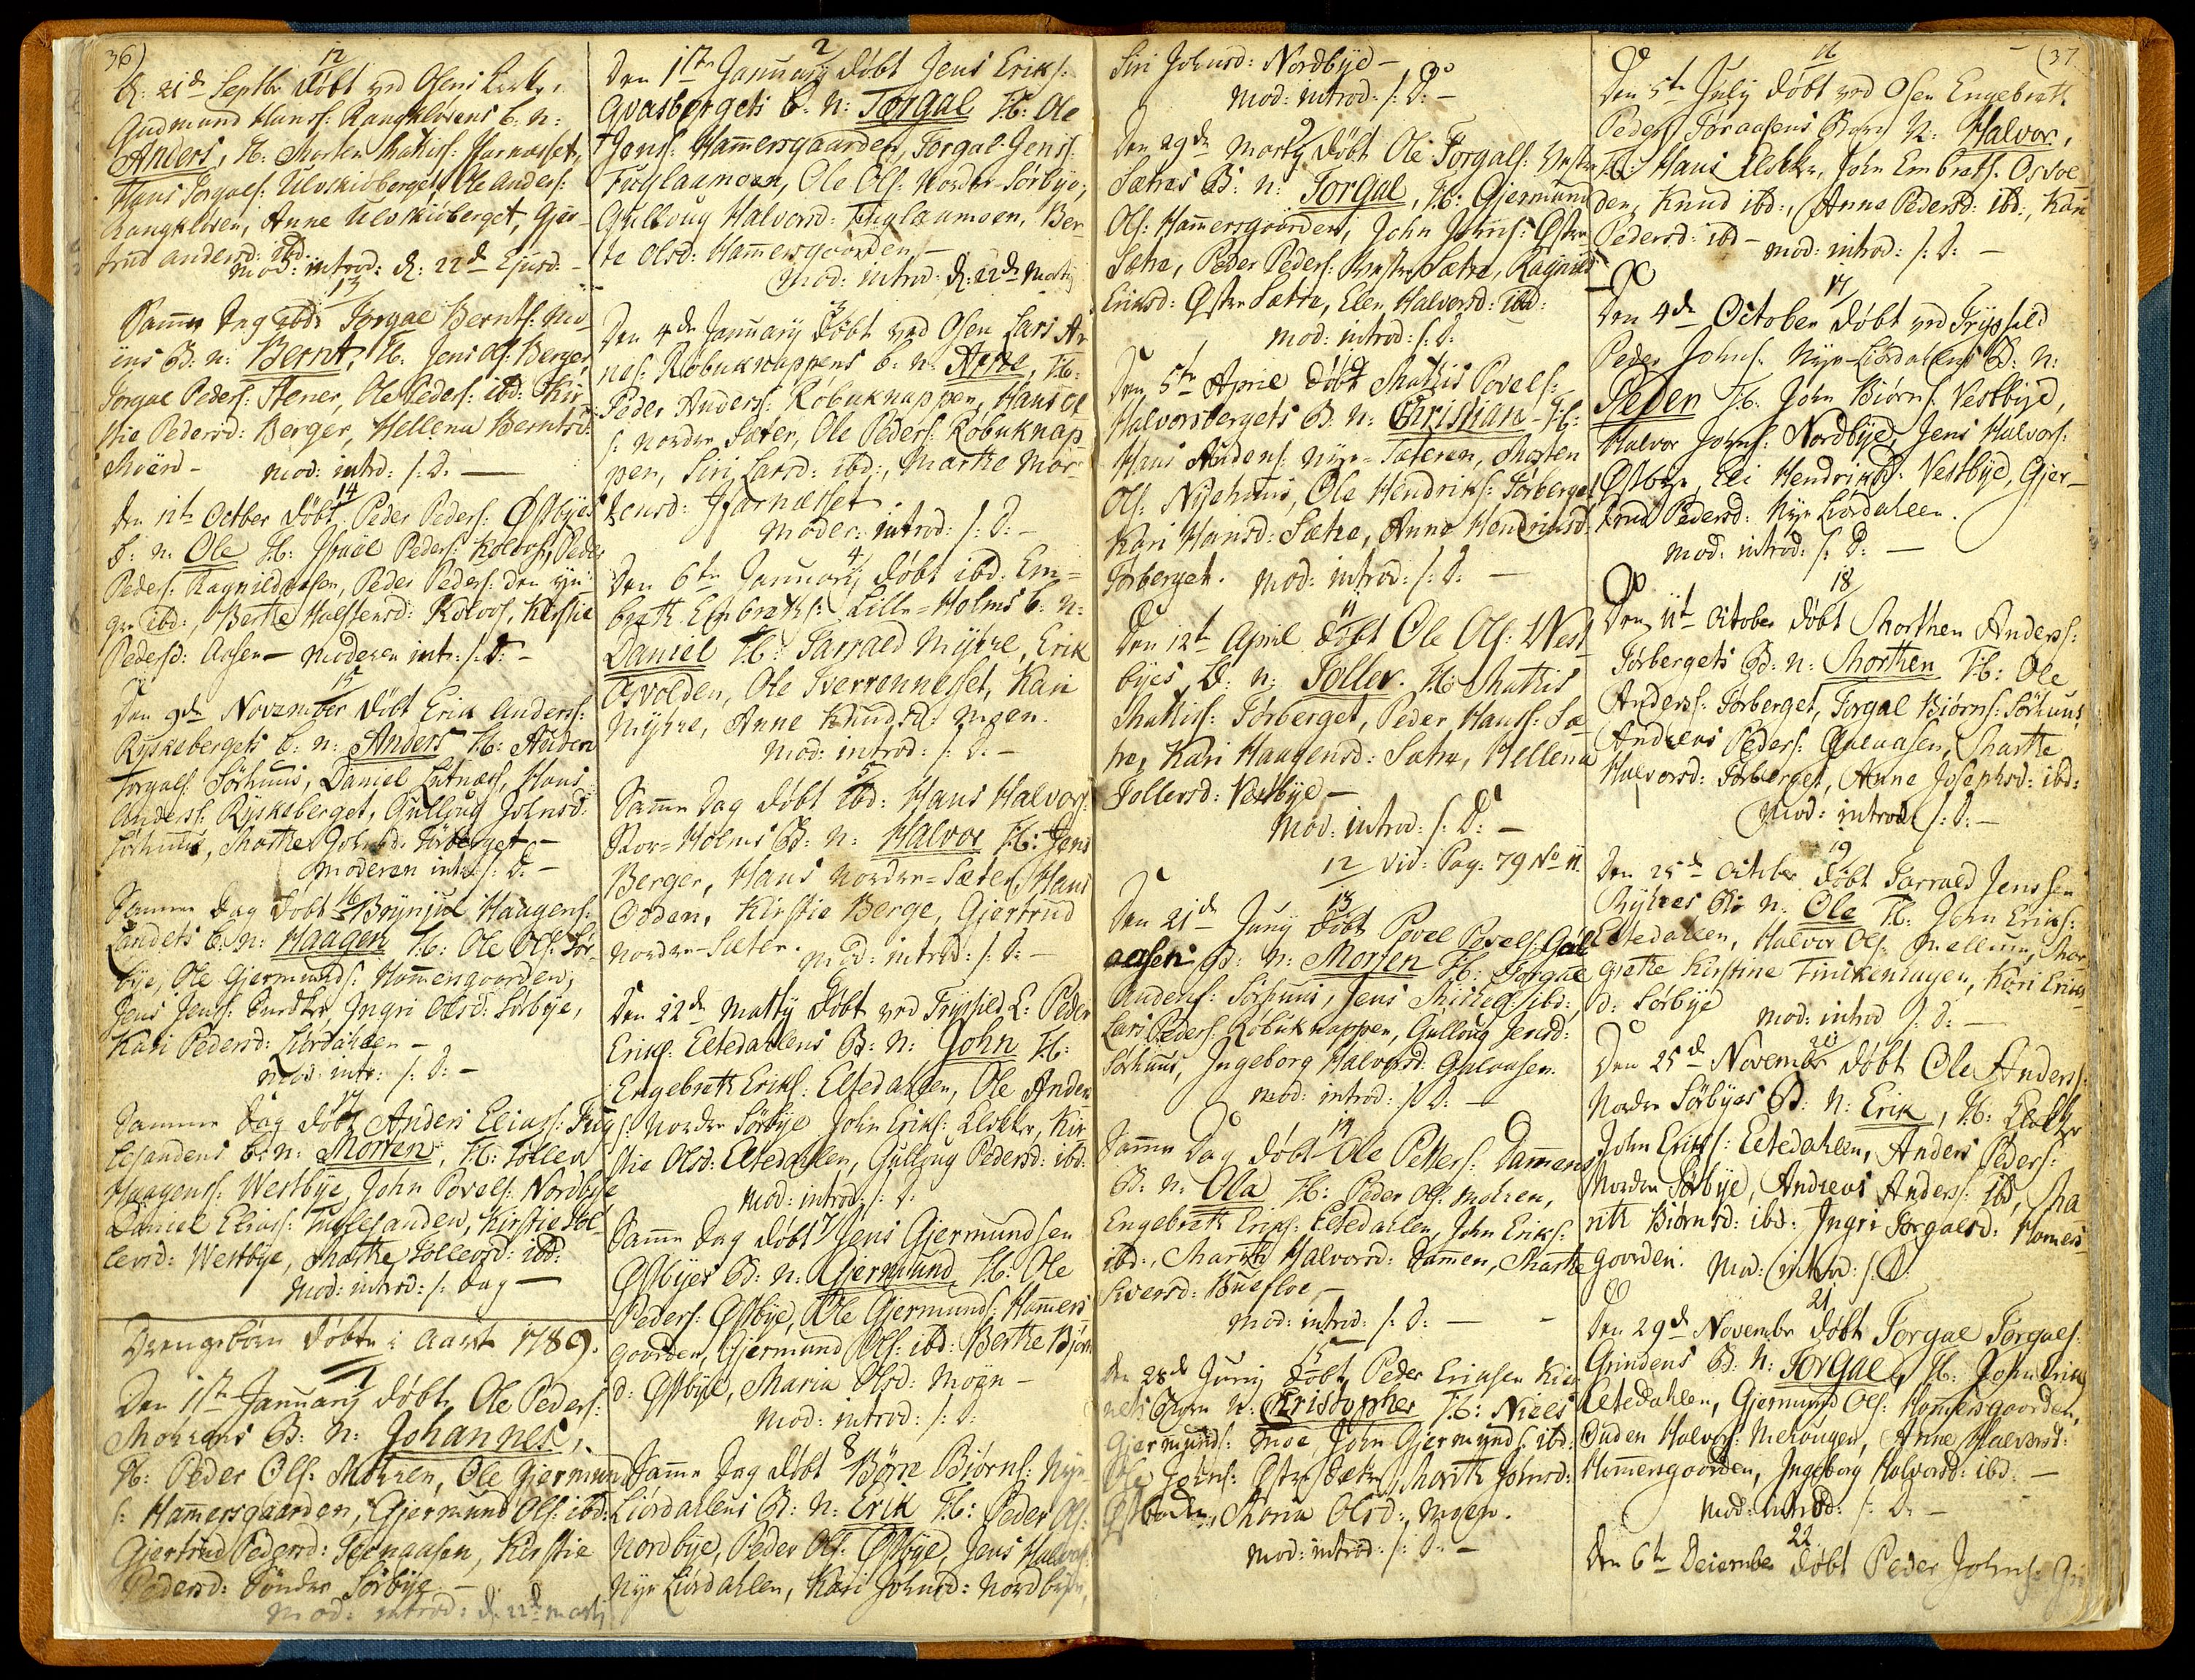 36)
12
d: 21de Septbr døbt ved Osens Kirke,
Gudmund Hans: Rangkløvens b: n:
Anders, Fb: Morten Mathis: Furnæsset,
Hans Torgals: Ulvskiøberget, Ole Anders:
Rangkløven, Anne Ulvskiøberget, Gjer-
trud Andersd: ibd:
Mod: introd: d: 22de Ejusd: -
13
Samme Dag ibd: Torgal Bernts: Mo-
ens B: n: Bernt, Fb: Jens Ols: Berger,
Torgal Peders: Stener, Ole Peders: ibd: Kir-
stie Pedersd: Berger, Hellena Berntsd:
Moen - Mod: intrd: s: D: -
14
den 11te Octber døbt Peder Peders: Østbyes
b: n: Ole Fb: Peders: Kolvos, Peder
Peders: Ragnildaasen, Peder Peders: den yn-
gre ibd:, Berthe Kolvos, Kirstie
Pedersd: Aasen - Moderen intr: s: D: -
15
Den 9de November døbt Erik Anders:
Ryskebergets b: n: Anders Fb: Auden
Torgals: Sørhuus, Daniel Lutnæs, Hans
Anders: Ryskeberget, Gulloug Johnsd:
Sørhuus, Marthe Johnsd: Tørberget -
Moderen intr: s: D: -
16
Samme Dag døbt Brynjul Haagens:
Landets b: n: Haagen Fb: Ole Ols: Sør-
bye, Ole Gjermunds: Hammersgaarden,
Jens Jens: Ingri Olsd: Sørbye,
Kari Pedersd: Liørdahlen -
Mod: intr: s: D: -
17
Samme Dag døbt Anders Elias: Fug-
lesandens b: n: Morten, Fb: Toller
Haagens: Westbye, John Povels: Nordbye
Daniel Elias: Fuglesanden, Kirstie Tol-
lersd: Westbye, Marthe Tollersd: ibd:
Mod: introd: s: Dag -
Drengebørn døbte i Aaret 1789.
1
Den 1ste January døbt Ole Peders:
Morens B: n: Johannes,
Fb: Peder Ols: Moren, Ole Gjermund
s: Hammersgaarden, Gjermund Ols: ibd:
Gjertrud Pedersd: Kirstie
Pedersd: Søndre Sørbye -
Mod: introd: d: 22de Martj
2
Den 1ste January døbt Jens Eriks:
Qvasbergets b: n: Torgal Fb: Ole
Jens: Hammersgaarden, Torgal Jens:
Fuglaamoen, Ole Ols: Nordre Sørbye,
Gulloug Halvorsd: Fuglaamoen, Ber-
te Olsd: Hammersgaarden -
Mod: introd: d: 22de Martij
3
Den 4de January døbt ved Osen Lars Ar-
nes: Røbuknappens b: n: Arne, Fb:
Peder Anders: Røbuknappen, Hans Ol
s: Nordre Sæter, Ole Peders: Røbuknap-
pen, Siri Larsd: ibd:, Marthe Mor-
tensd: Furnæsset
Moder: introd: s: D: -
4
Den 6te January døbt ibd: Em-
bret Embrets: Lille-Holms b: n:
Daniel Fb: Tarrald Myhre, Erik
Osvolden, Ole Tverrennesset, Kari
Myhre, Anne Knudsd: Moen.
Mod: introd: s: D: -
5
Samme Dag døbt ibd: Hans Halvors:
Stor-Holms B: n: Halvor Fb: Jens
Berger, Hans Nordre-Sæter, Hans
Odden, Kirstie Berge, Gjertrud
Nordre-Sæter. Mod: introd: s: D: -
Den 22de Martij døbt ved Trysild K: Peder
Eriks: Eltedahlens B: n: John Fb:
Engebreth Eriks: Eltedahlen, Ole Anders
s: Nordre Sørbye John Eriks: Klokker, Kir-
stie Olsd: Eltedahlen, Gulloug Pedersd: ibd:
Mod: introd: s: D:
7
Samme Dag døbt Jens Gjermundsen
Østbyes B: n: Gjermund Fb: Ole
Peders: Østbye, Ole Gjermunds: Hammers-
gaarden, Gjermund Ols: ibd: Berthe Bjørns
d: Østbye, Maria Olsd: Moen -
Mod: introd: s: D:
8
Samme Dag døbt Børre Biørns: Nye
Liørdahlens B: n: Erik Fb: Peder Ols:
Nordbye, Peder Ols: Østbye, Jens Halvors:
Nye Liørdahlen, Kari Johnsd: Nordbye,
Siri Johnsd: Nordbye -
Mod: introd: s: D: -
9
Den 29de Marty døbt Ole Torgals: Vestre
Sætres B: n: Torgal, Fb: Gjermund
Ols: Hammersgaarden, John Johns: Østre
Sætre, Peder Peders: Vestre Sætre, Ragnild
Eriksd: Østre Sætre, Elen Halvorsd: ibd:
Mod: introd: s: D:
Den 5te April døbt Mathis Povels:
Halvorsbergets B: n: Christian - Fb:
Hans Audens: Nye-Sæteren, Morten
Ols: Nyehuus, Ole Hendriks: Tørberget
Kari Hansd: Sætre, Anne Hendriksd:
Tørberget. Mod: introd: s: D: -
11
Den 12te April døbt Ole Ols: West-
byes B: n: Toller. Fb: Mathis
Mathis: Tørberget, Peder Hans: Sæ-
tre, Kari Haagensd: Sætre, Hellena
Tollersd: Vestbye -
Mod: introd: s: D: -
12 vid: Pag: 79 No 11.
13
Den 21de Juny døbt Povel Povels: Gal-
aasen B: n: Morten Fb: Torgal
Audens: Sørhuus, Jens ibd:,
Lars Peders: Røbuknappen, Gulloug Jensd:
Sørhuus, Ingeborg Halvorsd: Galaasen.
Mod: introd: s: D: -
14
Samme Dag døbt Ole Petters: Dammens
B: n: Ola Fb: Peder Ols: Mohren,
Engebreth Eriks: Eltedahlen, John Eriks:
ibd:, Marith Halvorsd: Dammen, Marthe
Siversd:
Mod: introd: s: D: -
15
Den 28de Juny døbt Peder Eriksen Kier-
nets Barn n: Christopher Fb: Niels
Gjermunds: Moe, John Gjermunds: ibd:
Ole Johns: Østre Sætre, Marith Johnsd:
Maria Olsd: Moen.
Mod: introd: s: D: -
(37
16
Den 5te July døbt ved Osen Engebreth
Peders: Børn N: Halvor,
Fb: Hans Klokker, John Embrets: Osvol-
den, Knud ibd:, Anne Pedersd: ibd:, Kari
Pedersd: ibd - Mod: introd: s: D: -
17
Den 4de October døbt ved Trysild
Peder Johns: Nye-Liørdahlens B: n:
Peder Fb: John Biørns: Vestbye,
Halvor Johns: Nordbye, Jens Halvors:
Østbye, Eli Hendriksd: Vestbye, Gjer-
trud Pedersd: Nye Liørdahlen.
Mod: introd: s: D: -
18
Den 11te October døbt Morthen Anders:
Tørbergets B: n: Morthen Fb: Ole
Anders: Tørberget, Torgal Biørns: Sørhuus,
Andreas Peders: Galaasen, Marthe
Halvorsd: Tørberget, Anne Josephsd: ibd:
Mod: introd: s: D: -
19
Den 25de October døbt Tarrald Jenssen
Nyhres B: n: Ole Fb: John Eriks:
Eltedahlen, Halvor Ols: Mar-
grethe Kirstine Finckenhagen, Kari Eriks
d: Sørbye Mod: introd s: D: -
20
Den 25de November døbt Ole Anders:
Nordre Sørbyes B: N: Erik, Fb: Klokker
John Eriks: Eltedahlen, Anders Peders:
Nordre Sørbye, Andreas Anders: ibd, Ma
rith Biørnsd: ibd: Ingri Torgalsd: Hamers-
gaarden. Mod: introd: s: D:
21
Den 29de November døbt Torgal Torgals:
Grindens B: n: Torgal, Fb: John Eriks
Eltedahlen, Gjermund Ols: Hammersgaarden,
Ouden Halvors: Anne Halvorsd:
Hammersgaarden, Ingeborg Halvorsd: ibd: -
Mod: introd: s: D: -
22
Den 6te December døbt Peder Johns: